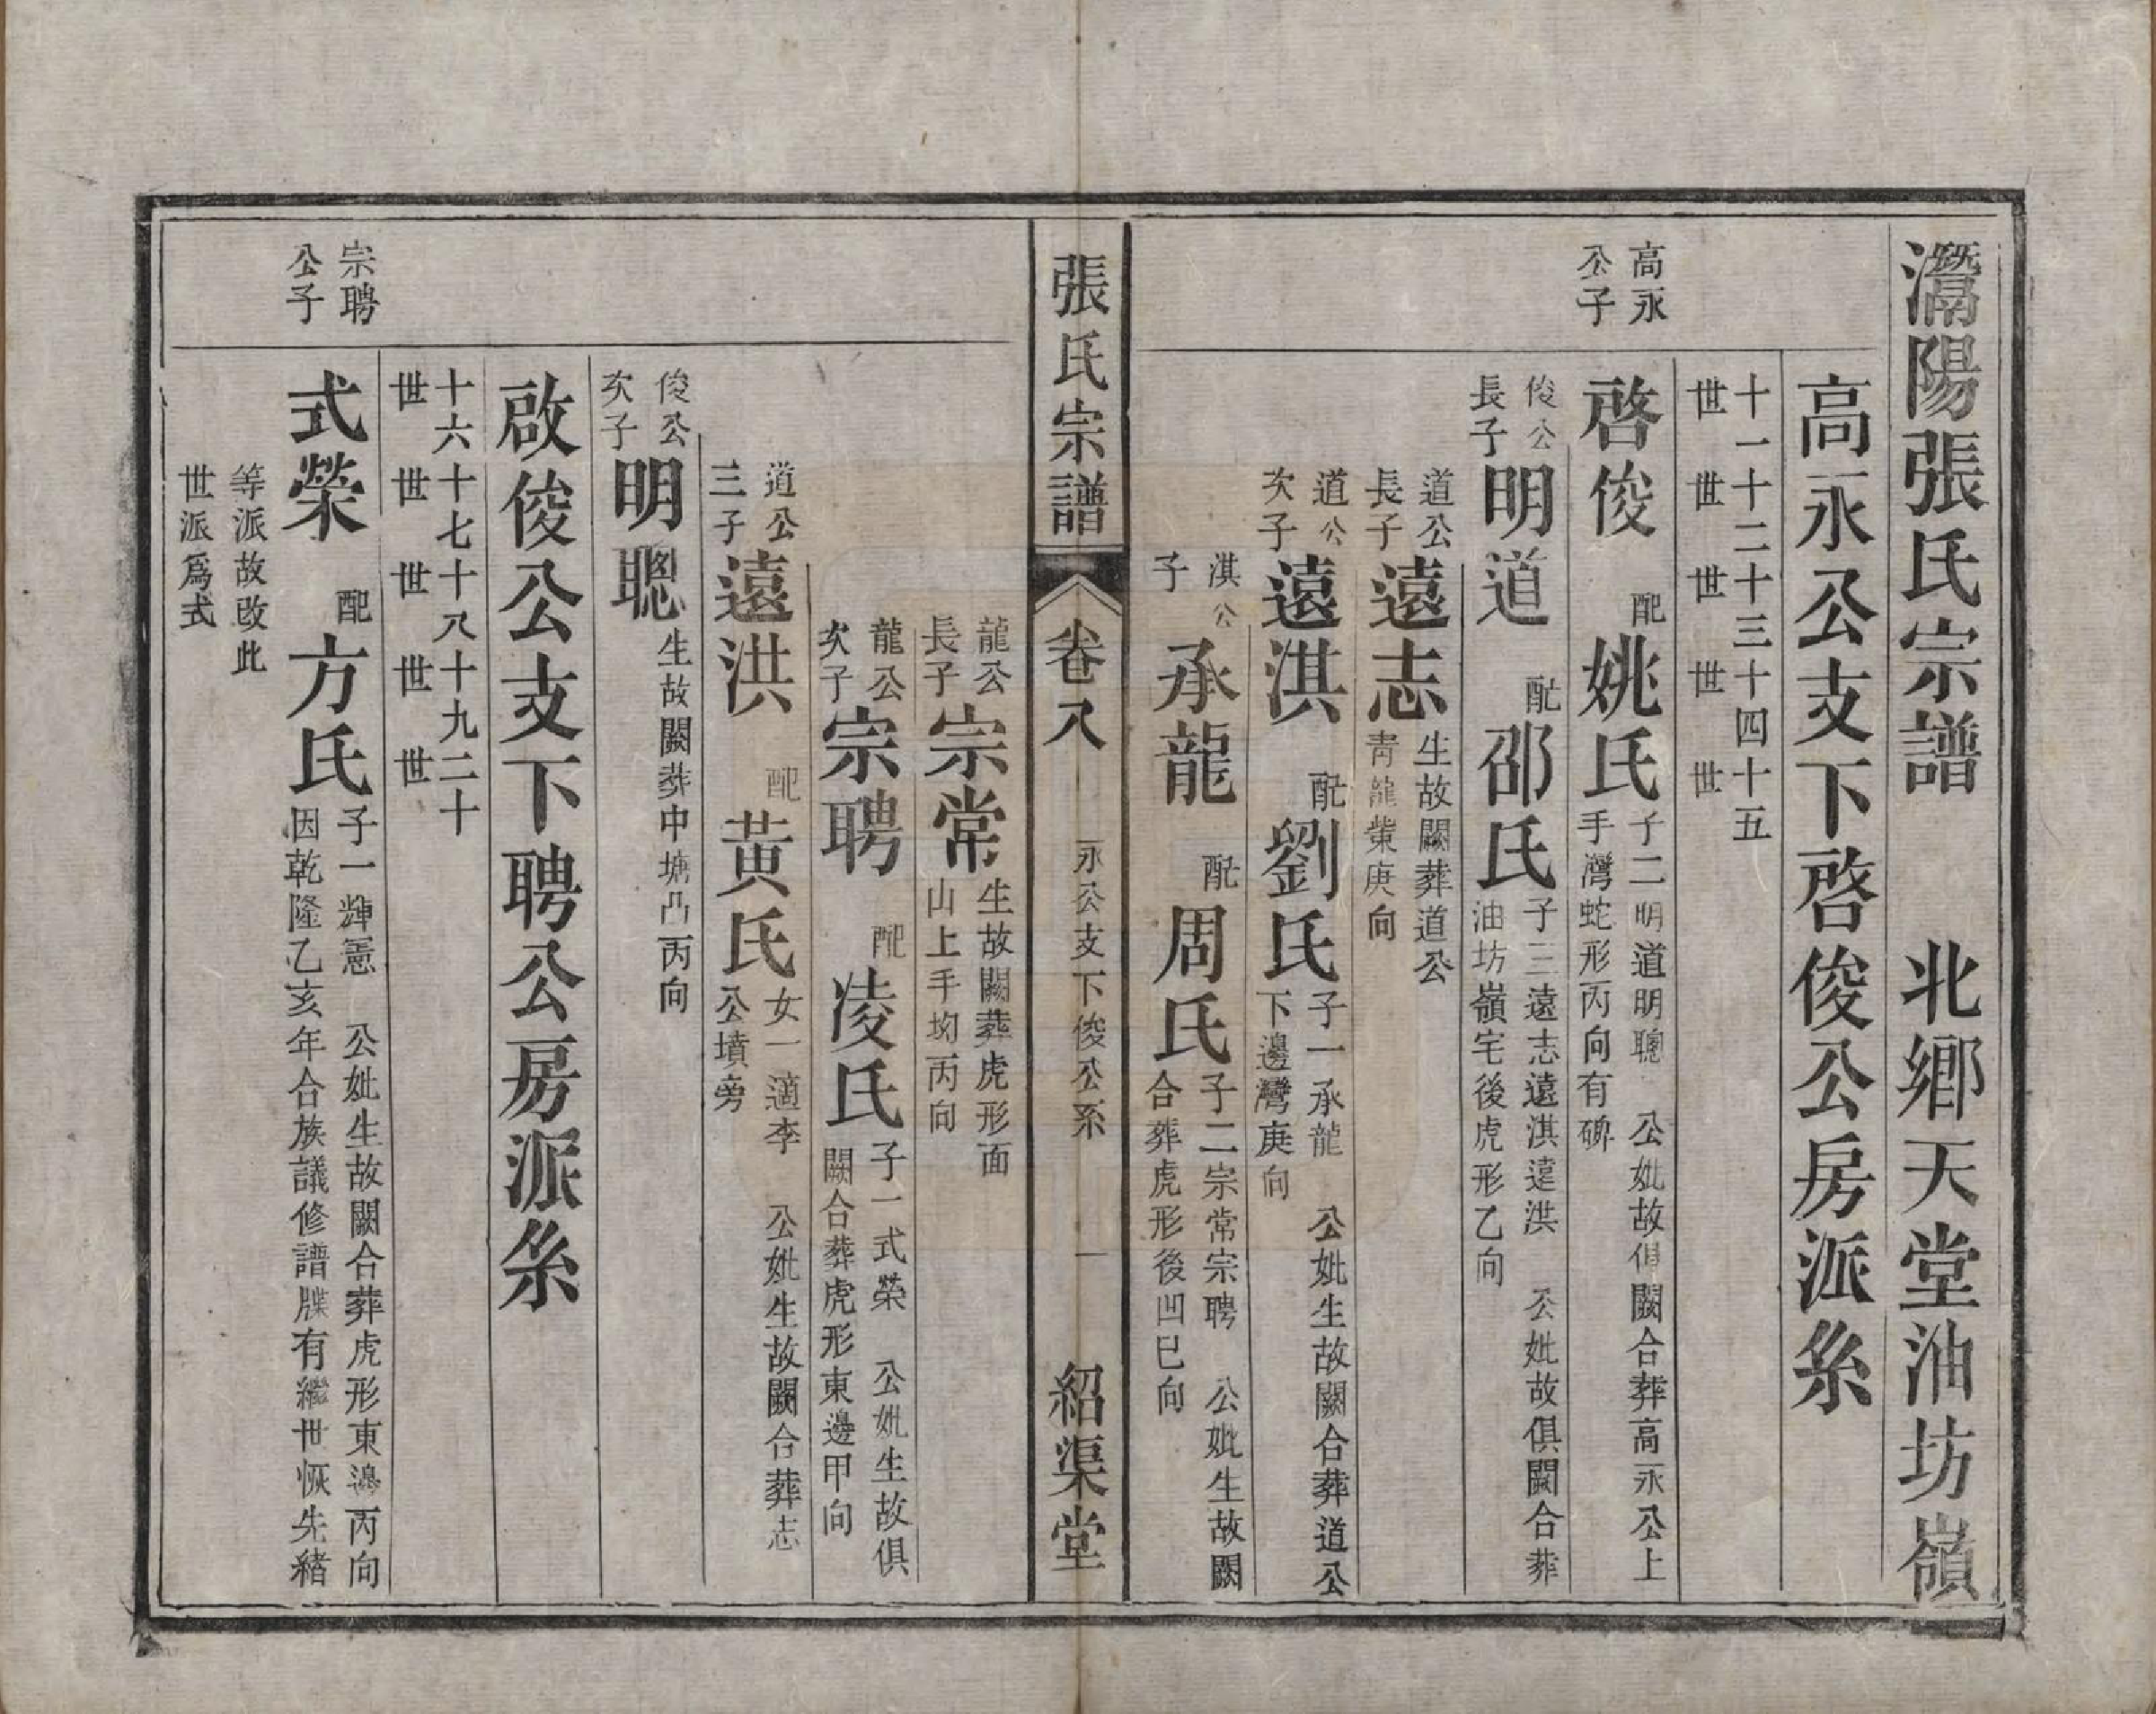 灊陽張氏宗譜 北鄉天堂油坊嶺
高永公支下啓俊公房派系
十一世 十二世 十三世 十四世 十五世
高永公子
啓俊 配姚氏 子二明道明聰 公妣故俱闕合葬高永公上手灣蛇形丙向有碑
俊公長子 明道 配邵氏 子三遠志遠淇遠洪 公妣故俱闕合葬油坊嶺宅後虎形乙向
道公長子 遠志 生故闕葬道公青龍嘴庚向
道公次子 遠淇 配劉氏 子一承龍 公妣生故闕合葬道公下邊灣庚向
淇公子 承龍 配周氏 子二宗常宗聘 公妣生故闕合葬虎形後凹巳向
張氏宗譜 卷八 永公支下俊公系 一 紹渠堂
龍公長子 宗常 生故闕葬虎形面山上手坳丙向
龍公次子 宗聘 配凌氏 子一式榮 公妣生故俱闕合葬虎形東邊甲向
道公三子 遠洪 配黃氏 女一適李 公妣生故闕合葬志公墳旁
俊公次子 明聰 生故闕葬中塘凸丙向
啟俊公支下聘公房派系
十六世 十七世 十八世 十九世 二十世
宗聘公子
式榮 配方氏 子一輝憲 公妣生故闕合葬虎形東邊丙向
因乾隆乙亥年合族議修譜牒有繼世恢先緒
等派故改此
世派爲式